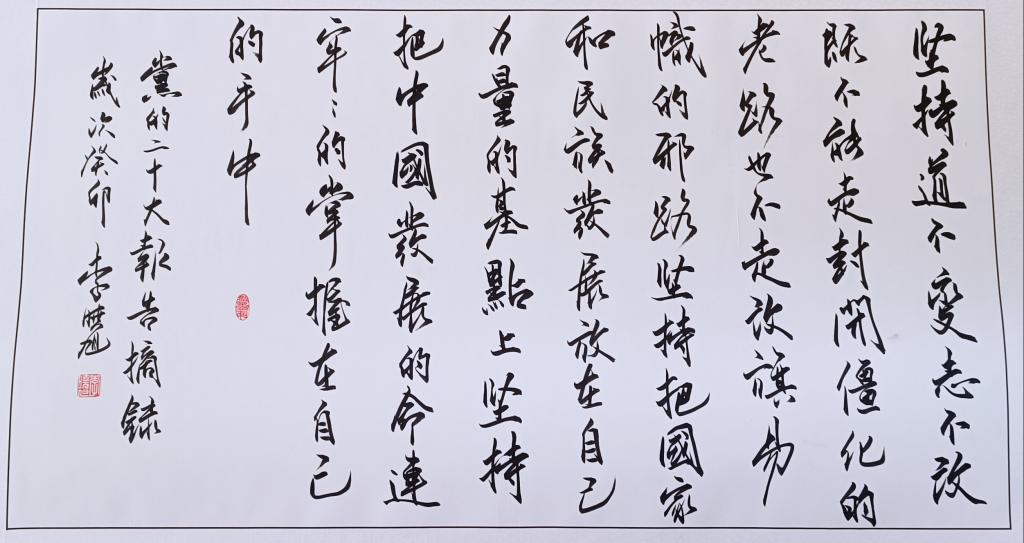 坚持道不变志不改
既不能走封闭僵化的
老路也不走改旗易
幟的邪路坚持把國家
和民族發展放在自己
力量的基點上坚持
把中國發展的命連
牢〻的掌握在自己
的手中
黨的二十大報告摘録
歲次癸卯 李晓旭